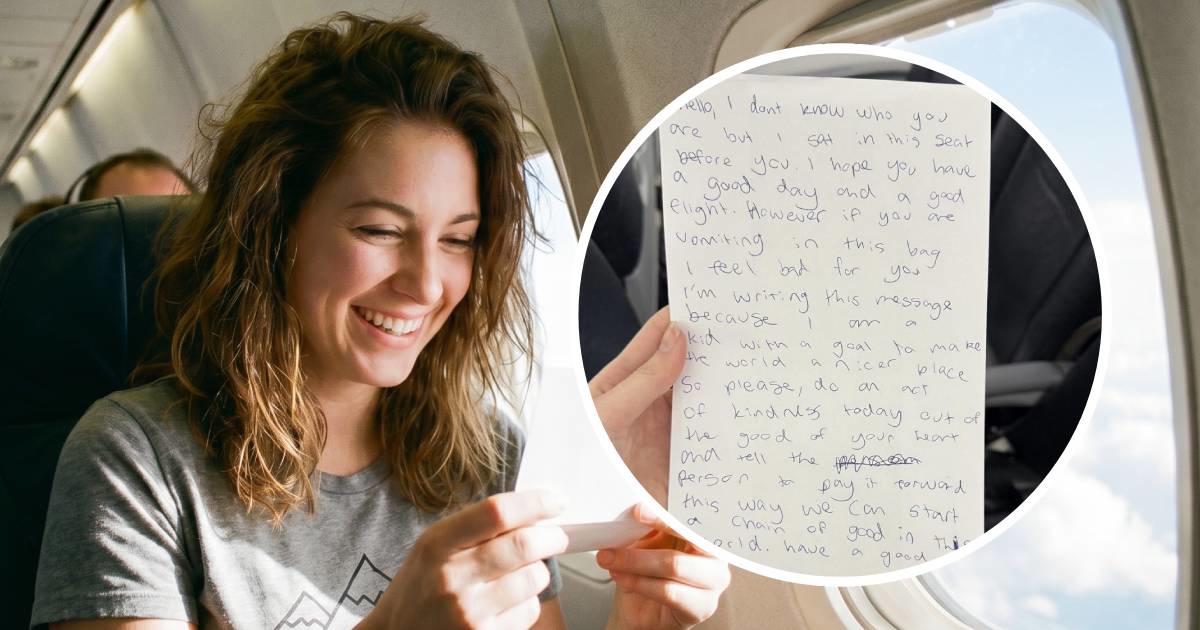 Hello, I dont know who you
are but I sat in this seat
before you. I hope you have
a good day and a good
flight. However if you are
vomiting in this bag
I feel bad for you
I'm writing this message
because I am a
kid with a goal to make
the world a nicer place
So please, do an act
of kindness today out of
the good of your heart
and tell the
person to pay it forward
this way we can start
a chain of good in this
world. have a good